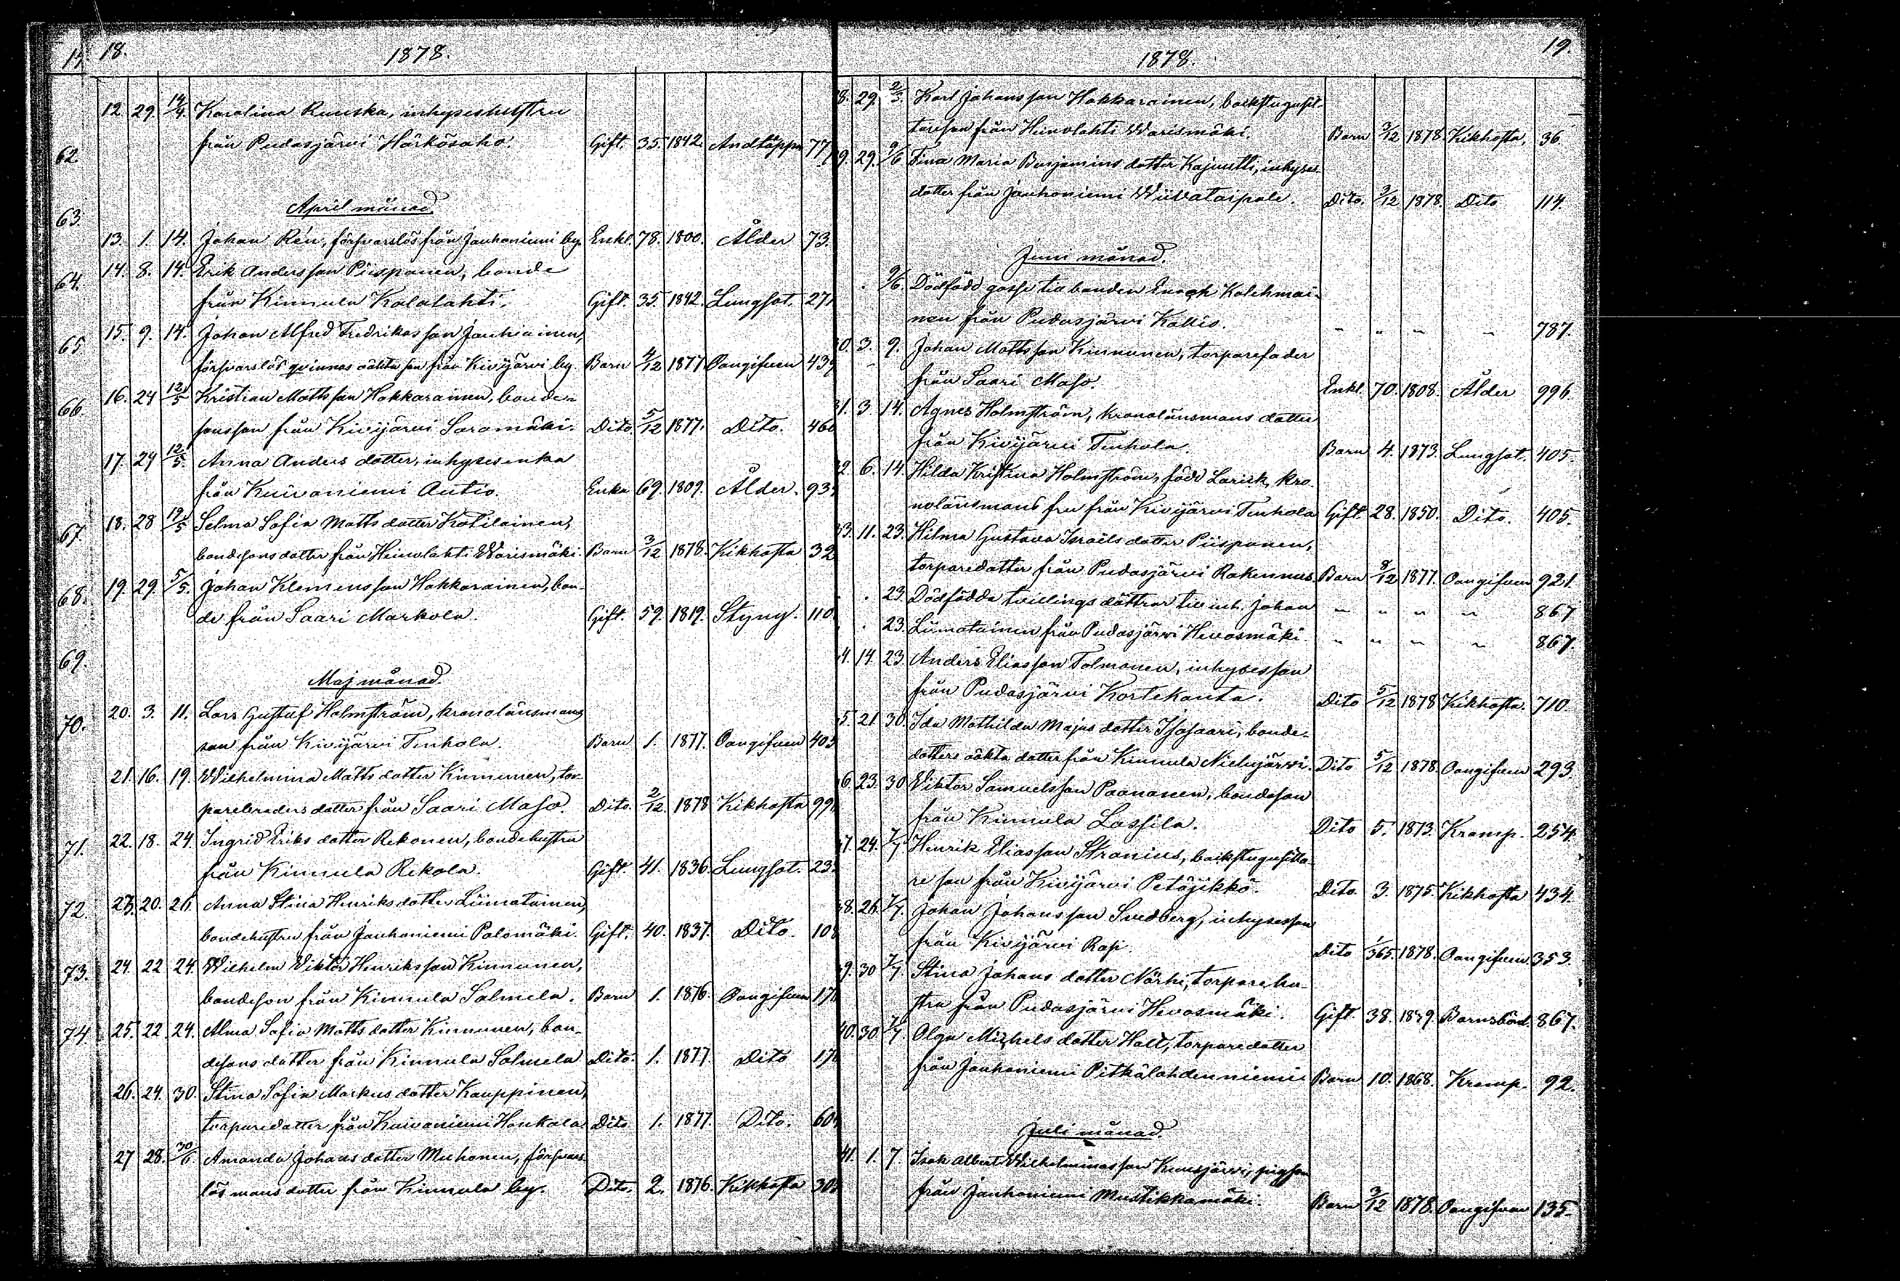 18.
1878.
12. 29. 14/4. Karolina Ruuska, inhyseshustru
från Pudasjärvi Härkösaho. Gift. 35. 1842. Andtäppa 77
April månad.
13. 1. 14. Johan Rén, försvarslös från Jauhoniemi by. Enkl. 78. 1800. Ålder 73.
14. 8. 14. Erik Andersson Piispanen, bonde
från Kinnula Kalalahti. Gift. 35. 1842. Lungsot. 27
15. 9. 14. Johan Alfred Fredrikasson Jauhiainen,
försvarslös qvinnas oäkta son från Kivijärvi by. Barn 4/12 1877. Oangifven 439
16. 24 12/5 Kristian Mattsson Hakkarainen, bonde-
sonsson från Kivijärvi Saramäki. Dito. 5/12 1877. Dito. 460
17. 24 12/5. Anna Anders dotter, inhysesenka
från Kuivaniemi Autio. Enka 69. 1809. Ålder. 93
18. 28 19/5 Selma Sofia Matts dotter Kotilainen,
bondesonsdotter från Heinolahti Warismäki Barn 3/12 1878. Kikhosta 32
19. 29. 5/5. Johan Klemensson Hakkarainen, bon-
de från Saari Markola. Gift. 59. 1819. Styng. 110
Maj månad.
20. 3. 11. Lars Gustaf Holmström, kronolänsmans
son från Kivijärvi Tenhola. Barn 1. 1877. Oangifven 405
21. 16. 19. Wilhelmina Matts dotter Kinnunen, tor-
parebroders dotter från Saari Maso. Dito. 2/12. 1878 Kikhosta 99
22. 18. 24. Ingrid Eriks dotter Rekonen, bondehustru
från Kinnula Rekola. Gift. 41. 1836. Lungsot. 23
23. 20. 26. Anna Stina Henriks dotter Liimatainen,
bondehustru från Jauhoniemi Palomäki. Gift. 40. 1837. Dito. 108
24. 22 24. Wilhelm Viktor Henriksson Kinnunen,
bondeson från Kinnula Salmela. Barn 1. 1876. Oangifven 17
25. 22 24. Alma Sofia Matts dotter Kinnunen, bon-
desons dotter från Kinnula Salmela Dito. 1. 1877. Dito 17
26. 24. 30. Stina Sofia Markus dotter Kauppinen,
torparedotter från Kuivaniemi Honkala Dito. 1. 1877. Dito. 60
27 28. 30/6. Amanda Johans dotter Muhonen, försvars-
lös mans dotter från Kinnula by. Dito. 2. 1876. Kikhosta 30
62
63.
64.
65
66.
67.
68.
69.
70.
71.
72.
73.
74.
19.
1878.
8. 29. Karl Johansson Hakkarainen, backstugusit-
tareson från Heinolahti Warismäki. Barn 3/12 1878. Kikhosta, 36.
9. 29. 9/6. Tina Maria Benjamins dotter Kajnutti, inhyses-
dotter från Jauhoniemi Wiivataipale. Dito. 3/12 1878. Dito 114.
Juni månad.
9/6. Dödfödd gosse till bonden Enoch Kolehmai-
nen från Pudasjärvi Källis. " " " " 787.
0. 3. 9. Johan Mattsson Kinnunen, torparefader
från Saari Maso. Enkl. 70. 1808. Ålder 996.
31. 3. 14. Agnes Holmström, kronolänsmans dotter
från Kivijärvi Tenhola. Barn 4. 1873. Lungsot. 405.
32. 6. 14. Hilda Kristina Holmström, född Larick, kro-
nolänsmans fru från Kivijärvi Tenhola Gift 28. 1850. Dito. 405.
33. 11. 23. Hilma Gustava Israëls dotter Piispanen,
torparedotter från Pudasjärvi Rakennus Barn 8/12 1877. Oangifven 921.
23. Dödfödda tvillings döttrar till inh. Johan " " " " 867
23. Liimatainen från Pudasjärvi Hevosmäki. " " " " 867.
4. 14. 23. Anders Eliasson Tolmonen, inhysesson
från Pudasjärvi Kortekanta. Dito 5/12 1878 Kikhosta. 710.
5. 21. 30. Ida Mathilda Majas dotter Isosaari, bonde-
dotters oäkta dotter från Kinnula Niemjärvi. Dito 5/12 1878. Oangifven 293.
6. 23. 30 Viktor Samuelsson Paananen, bondeson
från Kinnula Lassila. Dito 5. 1873. Kramp. 254.
7. 24. 7/7 Henrik Eliasson Stranius, backstugusitta-
re son från Kivijärvi Petäjikkö. Dito. 3. 1875. Kikhosta 434.
38. 26. 7/7. Johan Johansson Svedberg, inhysesson
från Kivijärvi Rapi. Dito 1/365. 1878. Oangifven. 353.
9. 30 7/7. Stina Johans dotter Närhi, torparehu-
stru från Pudasjärvi Hevosmäki. Gift. 38. 1839. Barnsbörd. 867.
40. 30 7/7. Olga Michels dotter Halt, torparedotter
från Jauhoniemi Pitkälahdenniemi Barn 10. 1868. Kramp. 92.
Juli månad.
41. 1. 7. Isak Albert Wilhelminasson Kuusjärvi, pigson
från Jauhoniemi Mustikkamäki. Barn 3/12 1878. Oangifven 135.